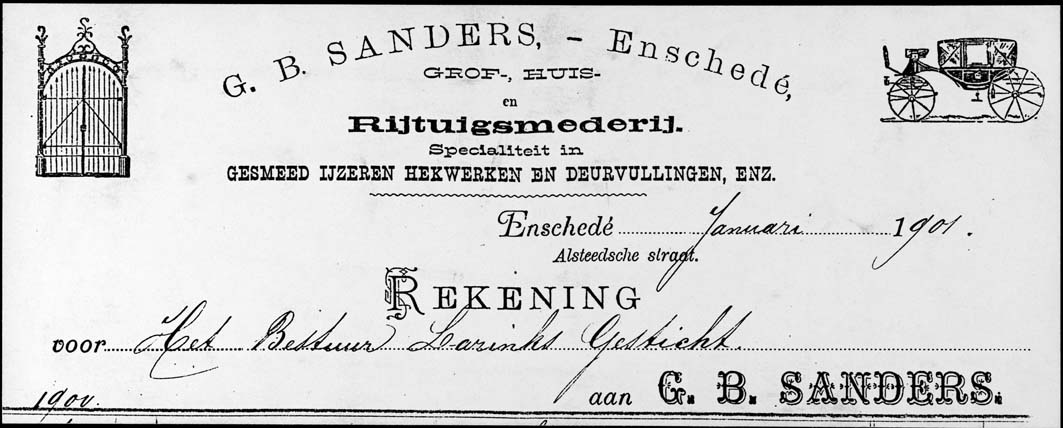 G. B. SANDERS, – Enschedé,
GROF-, HUIS-
en
Rijtuigsmederij.
Specialiteit in
GESMEED IJZEREN HEKWERKEN EN DEURVULLINGEN, ENZ.
Enschedé Januari 1901.
Alsteedsche straat.
REKENING
voor Het Bestuur Larinks Gesticht.
1900. aan G. B. SANDERS.